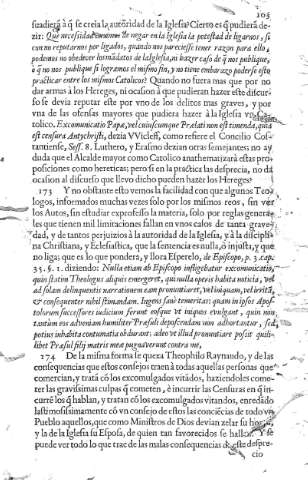 105
suadierà à q̃ se creìa la autoridad de la Iglesia? Cierto es q̃ pudiera de-
zir: Que necesidad ay de negar en la Iglesia la potestad de ligarnos, si
con no reputarnos por ligados, quando nos pareciesse tener razon para ello,
podemos no obedecer los mãdatos de la Iglesia, ni hazer caso de q̃ nos publique,
ò q̃ no nos publique si logramos el mismo fin, y no tiene embarazo poderse esto
practicar entre los mismos Catolicos? Quando no fuera mas que por no
dar armas à los Hereges, ni ocasion à que pudieran hazer este discur-
so se devia reputar este por vno de los delitos mas graves, y por
vna de las ofensas mayores que pudiera hazer à la Iglesia vn Ca-
tolico. Excomunicatio Papæ, vel cuiuscumque Prælati non est timenda, quia
est censura Antychristi, dezia VVicleff, como refiere el Concilio Cos-
tantiense, Sess. 8. Luthero, y Erasmo dezian otras semejantes: no ay
duda que el Alcalde mayor como Catolico anathematizarà estas pro-
posiciones como hereticas; pero si en la practica las desprecia, no dà
ocasion al discurso que llevo dicho pueden hazer los Hereges?
173 Y no obstante esto vemos la facilidad con que algunos Teo-
logos, informados muchas vezes solo por los mismos reos, sin ver
los Autos, sin estudiar exprofesso la materia, solo por reglas genera-
les que tienen mil limitaciones fallan en vnos casos de tanta grave-
dad, y de tantos perjuizios à la autoridad de la Iglesia, y à la discipli-
na Christiana, y Eclesiastica, que la sentencia es nulla, ò injusta, y que
no liga; que es lo que pondera, y llora Esperelo, de Episcopo, p. 3. cap.
35. §. 1. diziendo: Nulla etiam ab Episcopo infligebatur excomunicatio,
quin statim Theologus aliquis emergeret, qui nullis operis habita notitia, vel
ad solam delinquentis narrationem eam pronuntiaret, vel iniquam, vel irritã,
& consequenter nihil timendam. Ingens sanè temeritas: quam in ipsos Apos-
tolorum successores iudicium ferunt eosque vt iniquos evulgant, quin non
tantùm eos adveniam humiliter Præsuli deposcendam non adhortantur, sed
potius inhabita contumatia obdurant: adeo vt illud pronuntiare possit quili-
bet Præsul filij matris meæ pugnaverunt contra me,
174 De la misma forma se quexa Theophilo Raynaudo, y de las
consequencias que estos consejos traen à todas aquellas personas que
comercian, y tratã cõ los excomulgados vitandos, haziendoles come-
ter las gravissimas culpas q̃ cometen, è incurrir las Censuras en q̃ in-
currē los q̃ hablan, y tratan cõ los excomulgados vitandos, enredado
lastimosissimamente cõ vn consejo de estos las conciēcias de todo vn
Pueblo aquellos, que como Ministros de Dios devian zelar su honra,
y la de la Iglesia su Esposa, de quien tan favorecidos se hallan. Y se
puede ver todo lo que trae de las malas consequencias de este despre-
cio